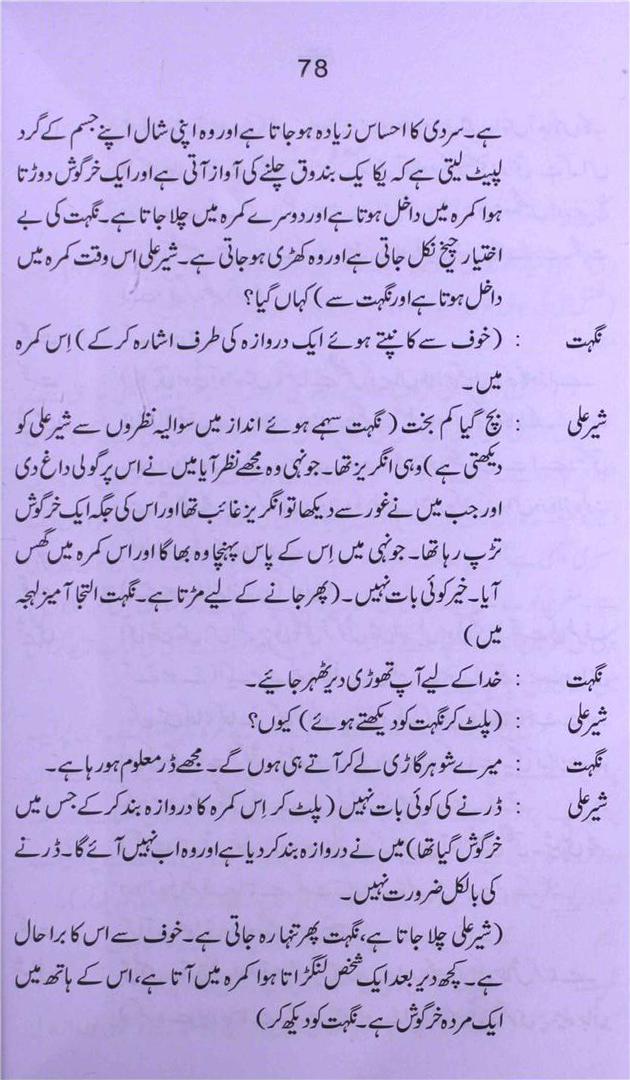 78
ہے۔ سردی کا احساس زیادہ ہو جاتا ہے اور وہ اپنی شال اپنے جسم کے گرد
لپیٹ لیتی ہے کہ یکایک بندوق چلنے کی آواز آتی ہے اور ایک خرگوش دوڑتا
ہوا کمرہ میں داخل ہوتا ہے اور دوسرے کمرہ میں چلا جاتا ہے۔ نگہت کی بے
اختیار چیخ نکل جاتی ہے اور وہ کھڑی ہو جاتی ہے۔ شیر علی اس وقت کمرہ میں
داخل ہوتا ہے اور نگہت سے) کہاں گیا؟
نگہت : (خوف سے کانپتے ہوئے ایک دروازہ کی طرف اشارہ کر کے) اِس کمرہ
میں۔
شیر علی : بچ گیا کم بخت (نگہت سہمے ہوئے انداز میں سوالیہ نظروں سے شیر علی کو
دیکھتی ہے) وہی انگریز تھا۔ جونہی وہ مجھے نظر آیا میں نے اس پر گولی داغ دی
اور جب میں نے غور سے دیکھا تو انگریز غائب تھا اور اس کی جگہ ایک خرگوش
تڑپ رہا تھا۔ جونہی میں اِس کے پاس پہنچا وہ بھاگا اور اس کمرہ میں گھس
آیا۔ خیر کوئی بات نہیں۔ (پھر جانے کے لیے مڑتا ہے۔ نگہت التجا آمیز لہجہ
میں)
نگہت : خدا کے لیے آپ تھوڑی دیر ٹھہر جائیے۔
شیر علی : (پلٹ کر نگہت کو دیکھتے ہوئے) کیوں؟
نگہت : میرے شوہر گاڑی لے کر آتے ہی ہوں گے۔ مجھے ڈر معلوم ہو رہا ہے۔
شیر علی : ڈرنے کی کوئی بات نہیں (پلٹ کر اِس کمرہ کا دروازہ بند کر کے جس میں
خرگوش گیا تھا) میں نے دروازہ بند کر دیا ہے اور وہ اب نہیں آئے گا۔ ڈرنے
کی بالکل ضرورت نہیں۔
(شیر علی چلا جاتا ہے، نگہت پھر تنہا رہ جاتی ہے۔ خوف سے اس کا برا حال
ہے۔ کچھ دیر بعد ایک شخص لنگڑاتا ہوا کمرہ میں آتا ہے، اس کے ہاتھ میں
ایک مردہ خرگوش ہے۔ نگہت کو دیکھ کر)